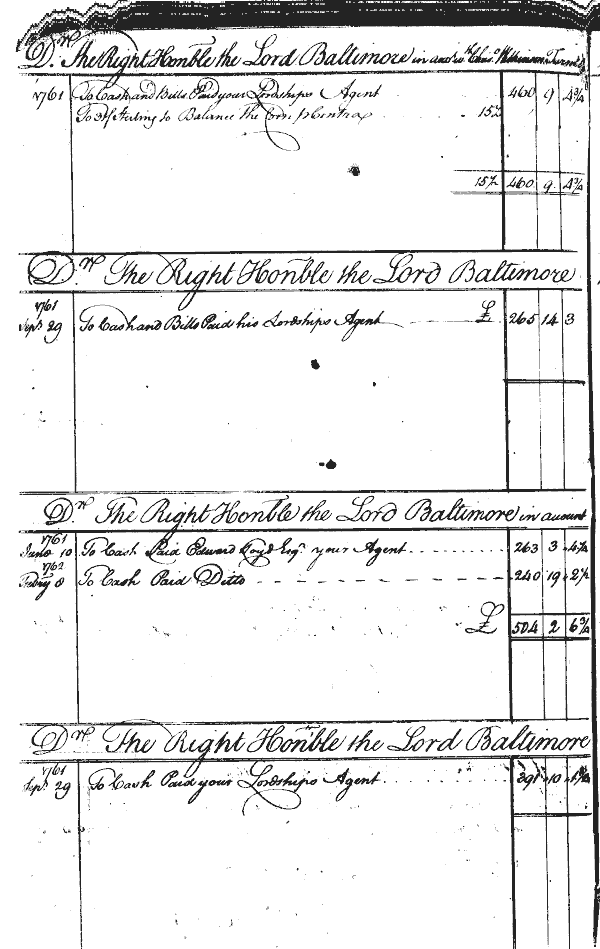 Dr The Right Honble the Lord Baltimore in
1761 To Cash and Bills Paid your Lordships Agent 460 9 4¾
To Sterling to Balance the 157
157 460 9 4¾
Dr The Right Honble the Lord Baltimore
1761
Sepr 29 To Cash and Bills Paid his Lordships Agent £ 265 14 3
Dr The Right Honble the Lord Baltimore in account
1761
June 10 To Cash Paid Edward Loyd Esqr your Agent 263 3 4¼
1762
Febry 8 To Cash Paid Ditto 240 19 2½
£ 504 2 6¾
Dr The Right Honble the Lord Baltimore
1761
Sepr 29 To Cash Paid your Lordships Agent 391 10